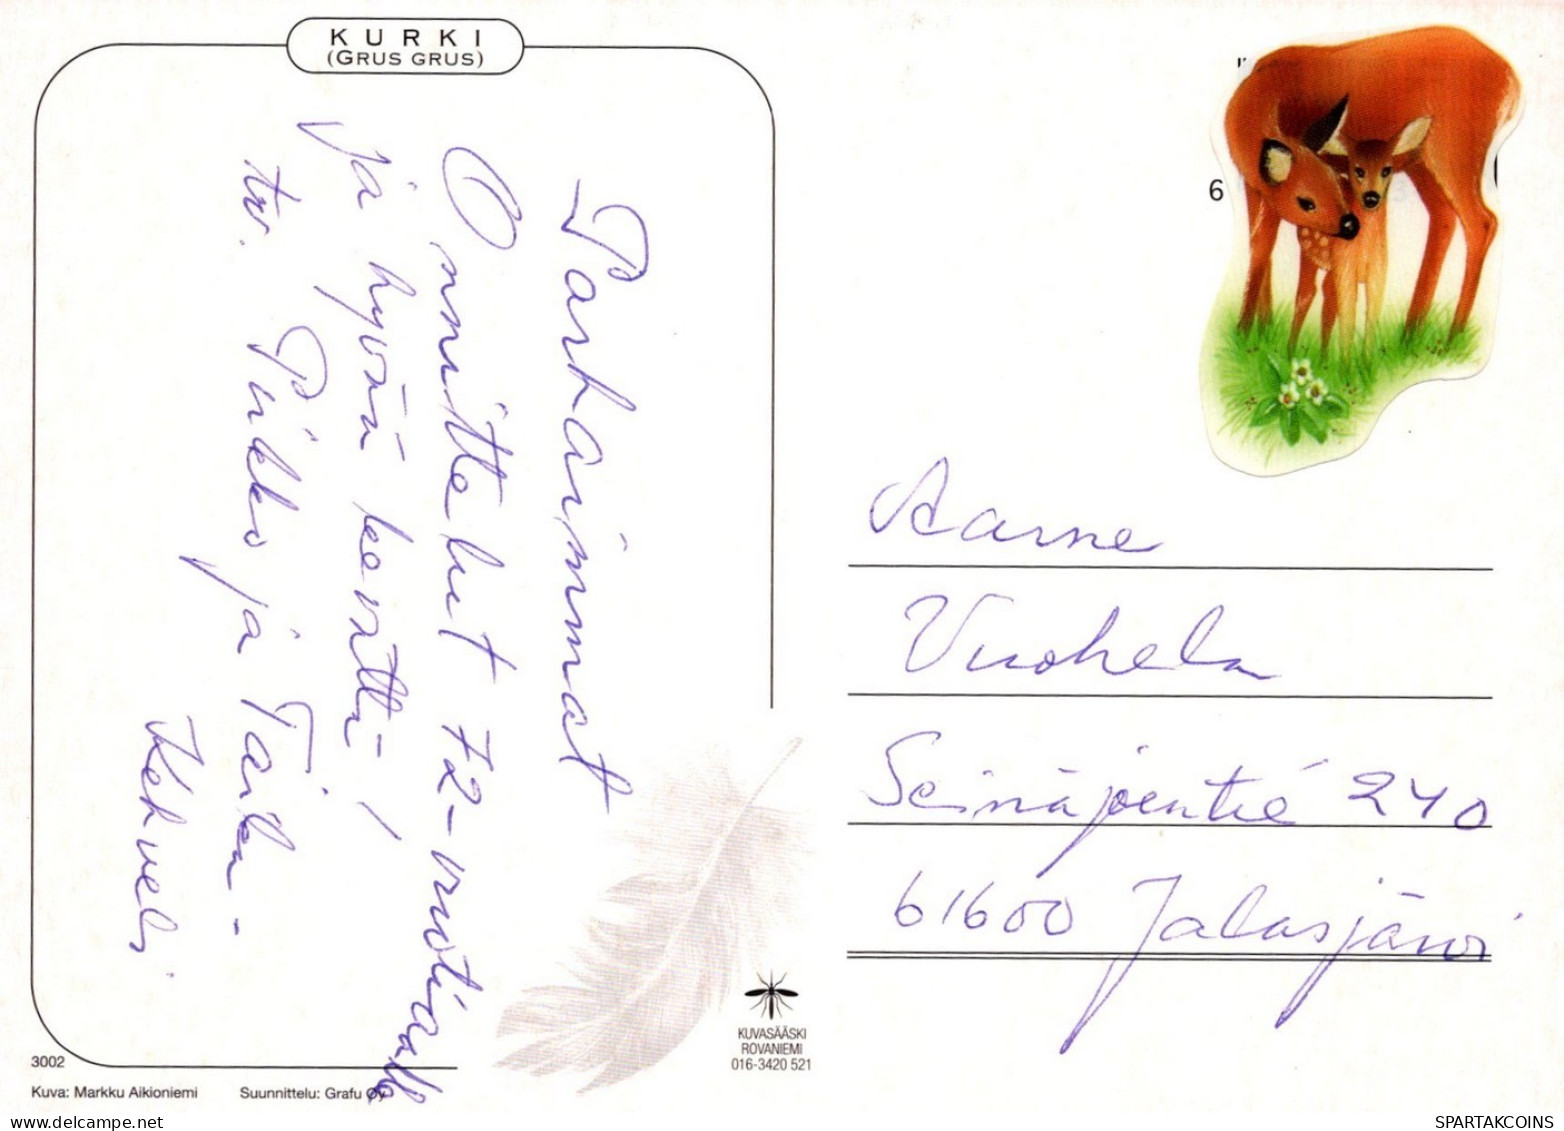 KURKI
(GRUS GRUS)
Parhaimmat
Onnittelut 72-vuotiaalle
ja hyvää kevättä!
tv. Pirkko ja Taika
Kehveli
6
Aarne
Vuohela
Seinäjoentie 240
61600 Jalasjärvi
KUVASÄÄSKI
ROVANIEMI
016-3420 521
3002
Kuva: Markku Aikioniemi Suunnittelu: Grafu Oy
SPARTAKCOINS